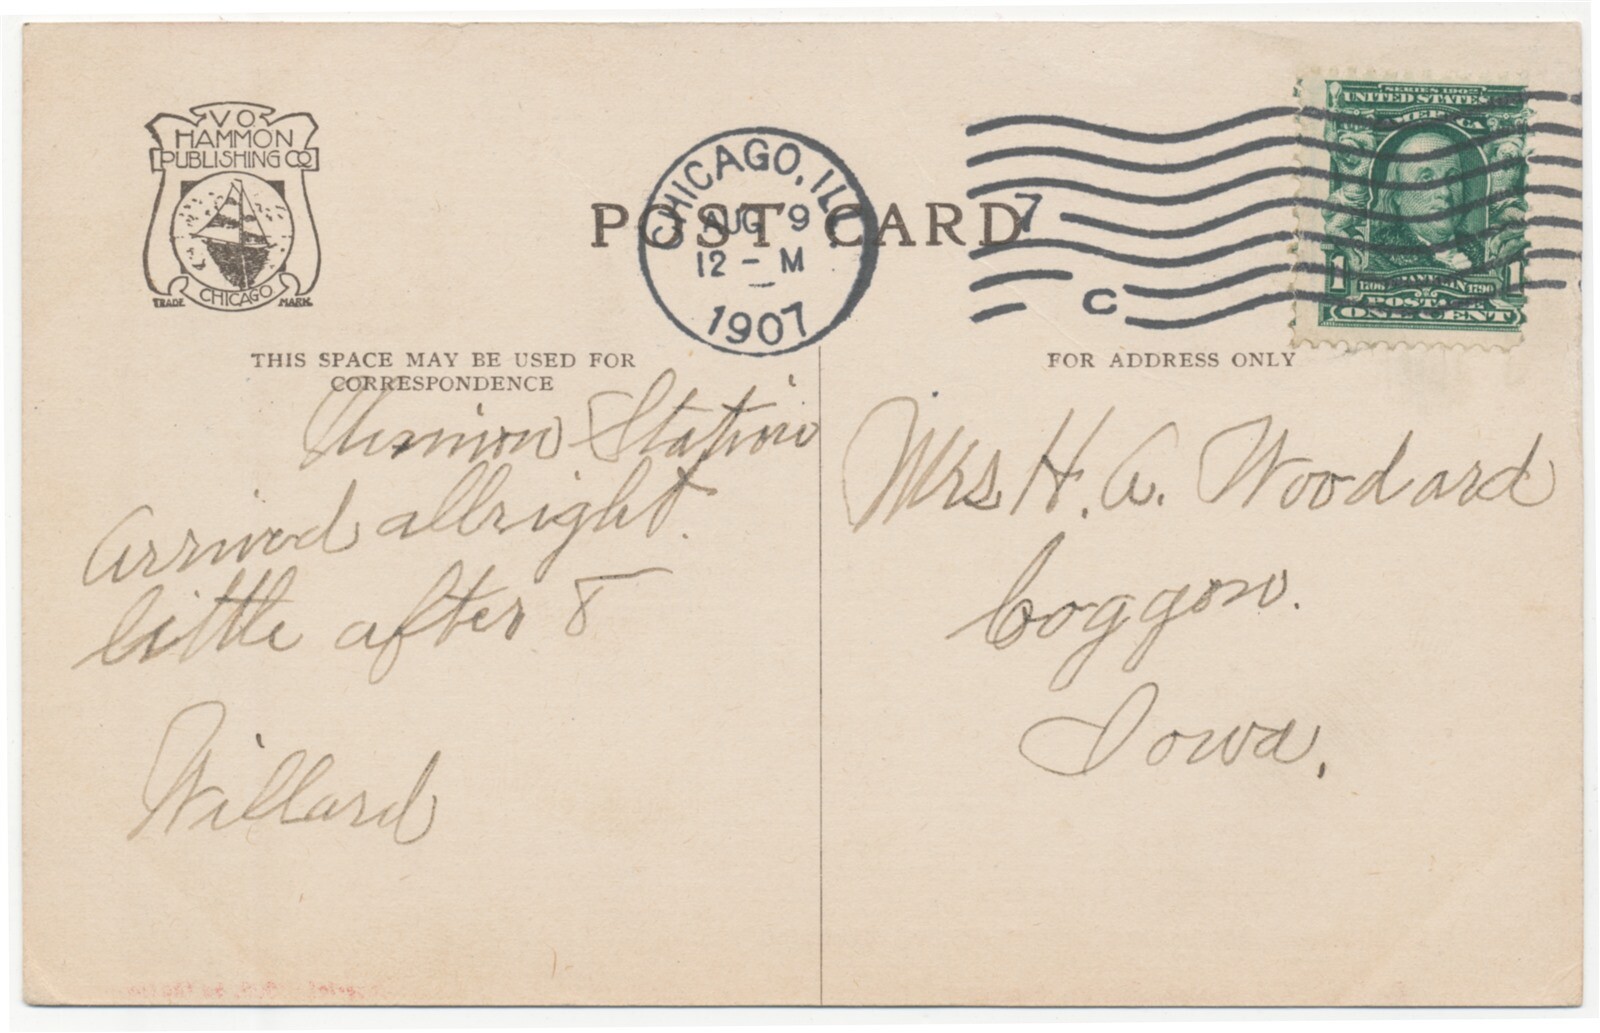 V O
HAMMON
PUBLISHING CO
CHICAGO
TRADE MARK
POST CARD
CHICAGO, ILL
AUG 9
12 - M
1907
7
C
SERIES 1902
UNITED STATES
AMERICA
1 1
1706 FRANKLIN 1790
POSTAGE
ONE CENT
THIS SPACE MAY BE USED FOR
CORRESPONDENCE
Union Station
Arrived allright.
little after 8
Willard
FOR ADDRESS ONLY
Mrs H. A. Woodard
Coggon.
Iowa.